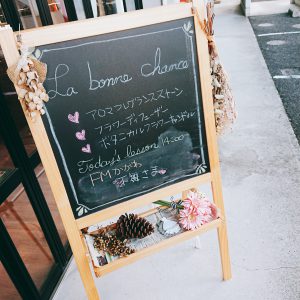 La bonne chance
アロマフレグランスストーン
フラワーディフューザー
ボタニカルフラワーキャンドル
Today's lesson 14:00
FMかがわ
さま